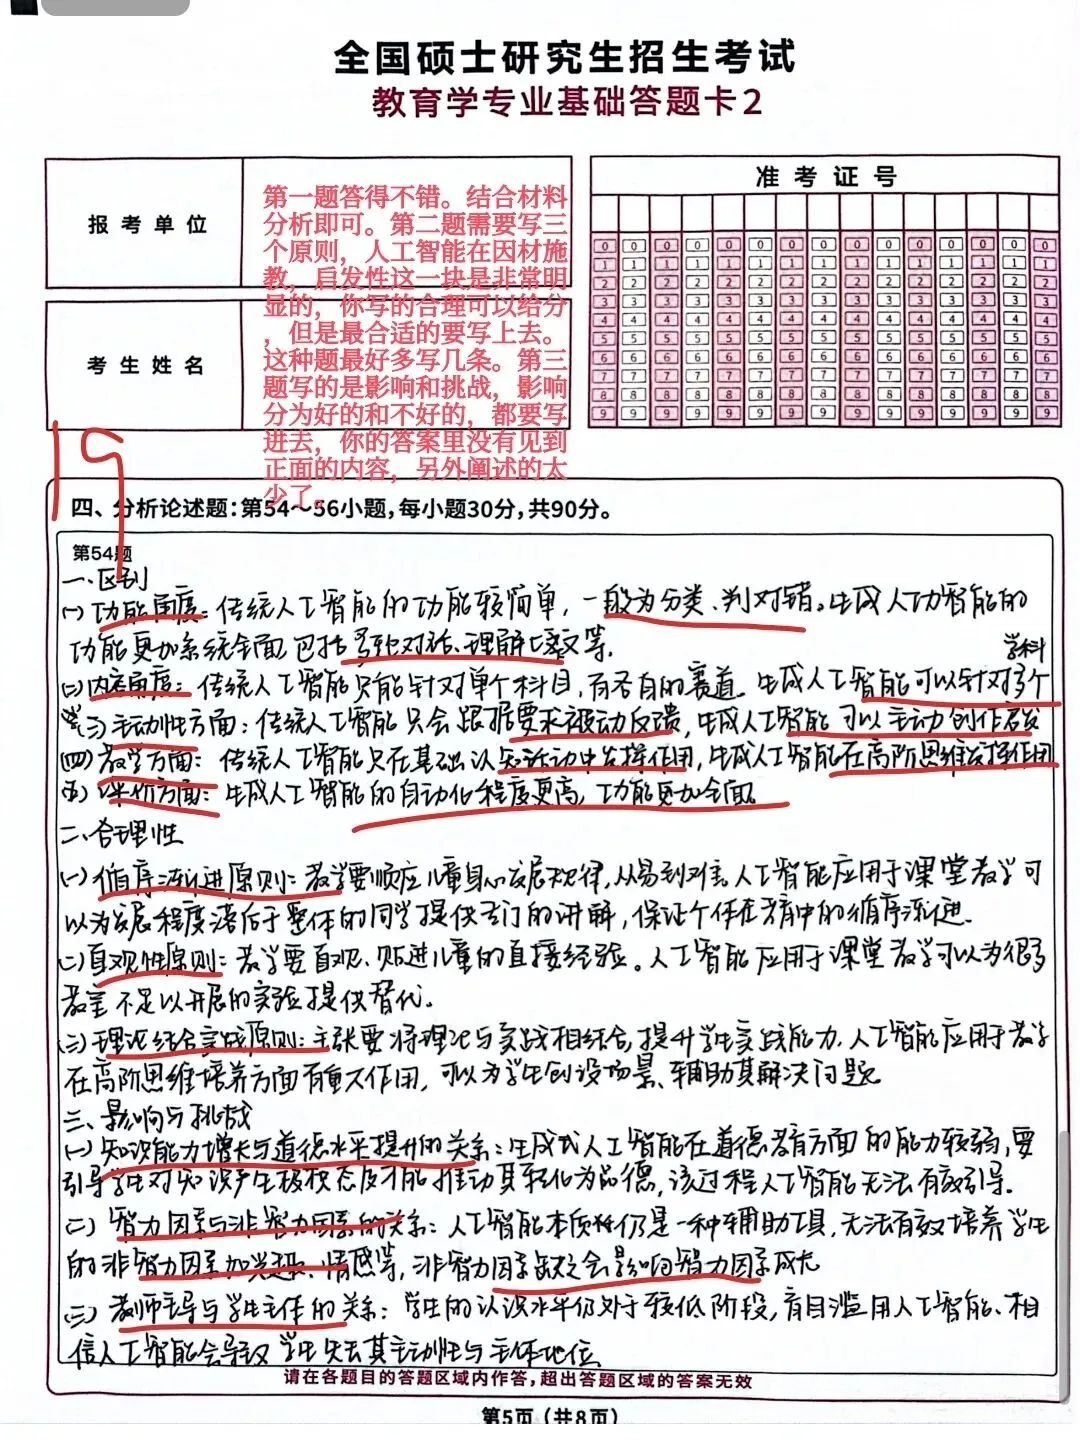 全国硕士研究生招生考试
教育学专业基础答题卡2
报考单位
考生姓名
准考证号
第一题答得不错。结合材料
分析即可。第二题需要写三
个原则，人工智能在因材施
教，启发性这一块是非常明
显的，你写的合理可以给分
，但是最合适的要写上去。
这种题最好多写几条。第三
题写的是影响和挑战，影响
分为好的和不好的，都要写
进去，你的答案里没有见到
正面的内容，另外阐述的太
少了。
0 0 0 0 0 0 0 0 0 0 0 0 0 0 0
1 1 1 1 1 1 1 1 1 1 1 1 1 1 1
2 2 2 2 2 2 2 2 2 2 2 2 2 2 2
3 3 3 3 3 3 3 3 3 3 3 3 3 3 3
4 4 4 4 4 4 4 4 4 4 4 4 4 4 4
5 5 5 5 5 5 5 5 5 5 5 5 5 5 5
6 6 6 6 6 6 6 6 6 6 6 6 6 6 6
7 7 7 7 7 7 7 7 7 7 7 7 7 7 7
8 8 8 8 8 8 8 8 8 8 8 8 8 8 8
9 9 9 9 9 9 9 9 9 9 9 9 9 9 9
19
四、分析论述题：第54～56小题，每小题30分，共90分。
第54题
一、区别
(一) 功能角度：传统人工智能的功能较简单，一般为分类、判对错。生成人工智能的
功能更加系统全面包括多轮对话、理解上下文等。
(二) 内容角度：传统人工智能只能针对单个科目，有各自的赛道。生成人工智能可以针对多个
学科
(三) 主动性方面：传统人工智能只会跟据要求被动反馈，生成人工智能可以主动创作
(四) 教学方面：传统人工智能只在基础认知活动中发挥作用，生成人工智能在高阶思维发挥作用
(五) 评价方面：生成人工智能的自动化程度更高，功能更加全面
二、合理性
(一) 循序渐进原则：教学要顺应儿童身心发展规律，从易到难。人工智能应用于课堂教学可
以为发展程度落后于整体的同学提供专门的讲解，保证个体在教育中的循序渐进。
(二) 直观性原则：教学要直观、贴近儿童的直接经验。人工智能应用于课堂教学可以为很多
教室不足以开展的实验提供替代。
(三) 理论结合实践原则：主张要将理论与实践相结合，提升学生实践能力，人工智能应用于教学
在高阶思维培养方面有重大作用，可以为学生创设场景、辅助其解决问题
三、影响与挑战
(一) 知识能力增长与道德水平提升的关系：生成式人工智能在道德教育方面的能力较弱，要
引导学生对知识产生积极态度才能推动其转化为品德，该过程人工智能无法有效引导。
(二) 智力因素与非智力因素的关系：人工智能本质性仍是一种辅助工具，无法有效培养学生
的非智力因素如兴趣、情感等，非智力因素缺乏会影响智力因素成长
(三) 教师主导与学生主体的关系：学生的认识水平仍处于较低阶段，盲目滥用人工智能、相
信人工智能会导致学生失去其主动性与主体地位
请在各题目的答题区域内作答，超出答题区域的答案无效
第5页（共8页）